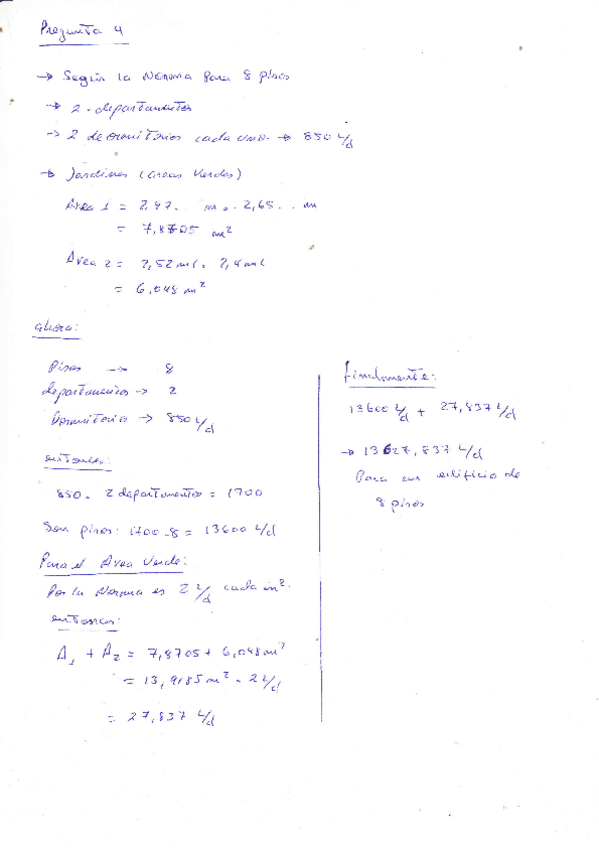 Pregunta 4
→ Según la Norma para 8 pisos
→ 2 - departamentos
→ 2 dormitorios cada uno → 850 L/d
→ Jardines (áreas Verdes)
Área 1 = 2,97 m . 2,65 m
= 7,8705 m²
Área 2 = 2,52 ml . 2,4 ml
= 6,048 m²
ahora:
Pisos → 8
departamentos → 2
Dormitorio → 850 L/d
entonces:
850 . 2 departamentos = 1700
Son pisos: 1700 . 8 = 13600 L/d
Para el Área Verde:
Por la Norma es 2 L/d cada m².
entonces:
A₁ + A₂ = 7,8705 + 6,048 m²
= 13,9185 m² . 2 L/d
= 27,837 L/d
finalmente:
13600 L/d + 27,837 L/d
→ 13627,837 L/d
Para un edificio de
8 pisos